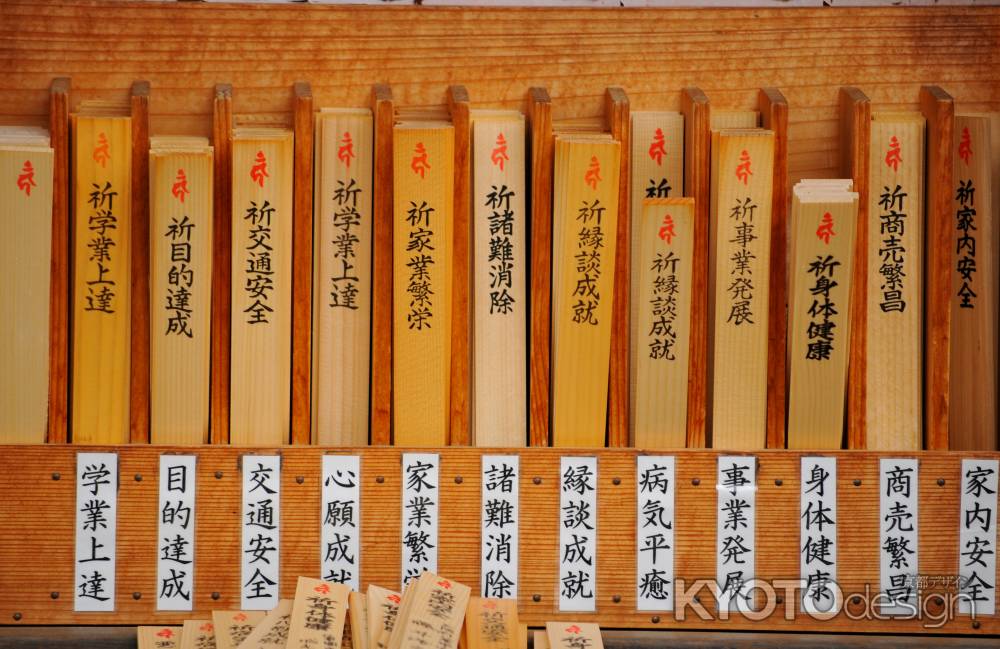 祈学業上達
祈目的達成
祈交通安全
祈学業上達
祈家業繁栄
祈諸難消除
祈縁談成就
祈
祈縁談成就
祈事業発展
祈身体健康
祈商売繁昌
祈家内安全
学業上達
目的達成
交通安全
心願成就
家業繁栄
諸難消除
縁談成就
病気平癒
事業発展
身体健康
商売繁昌
家内安全
祈身体健康
京都デザイン
KYOTOdesign